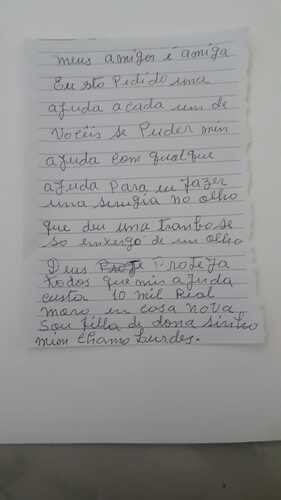 meus amigos é amiga
Eu sto Pedido uma
ajuda a cada um de
Vocêis se Puder min
ajuda com qualque
ajuda Para eu fazer
uma sirugia no olho
que deu uma tranbose
so emxergo de um olho
Deus Proteja
todos que min ajuda
custa 10 mil Real
moro em casa nova
Sou filla de dona sinho
min chamo Lurdes.